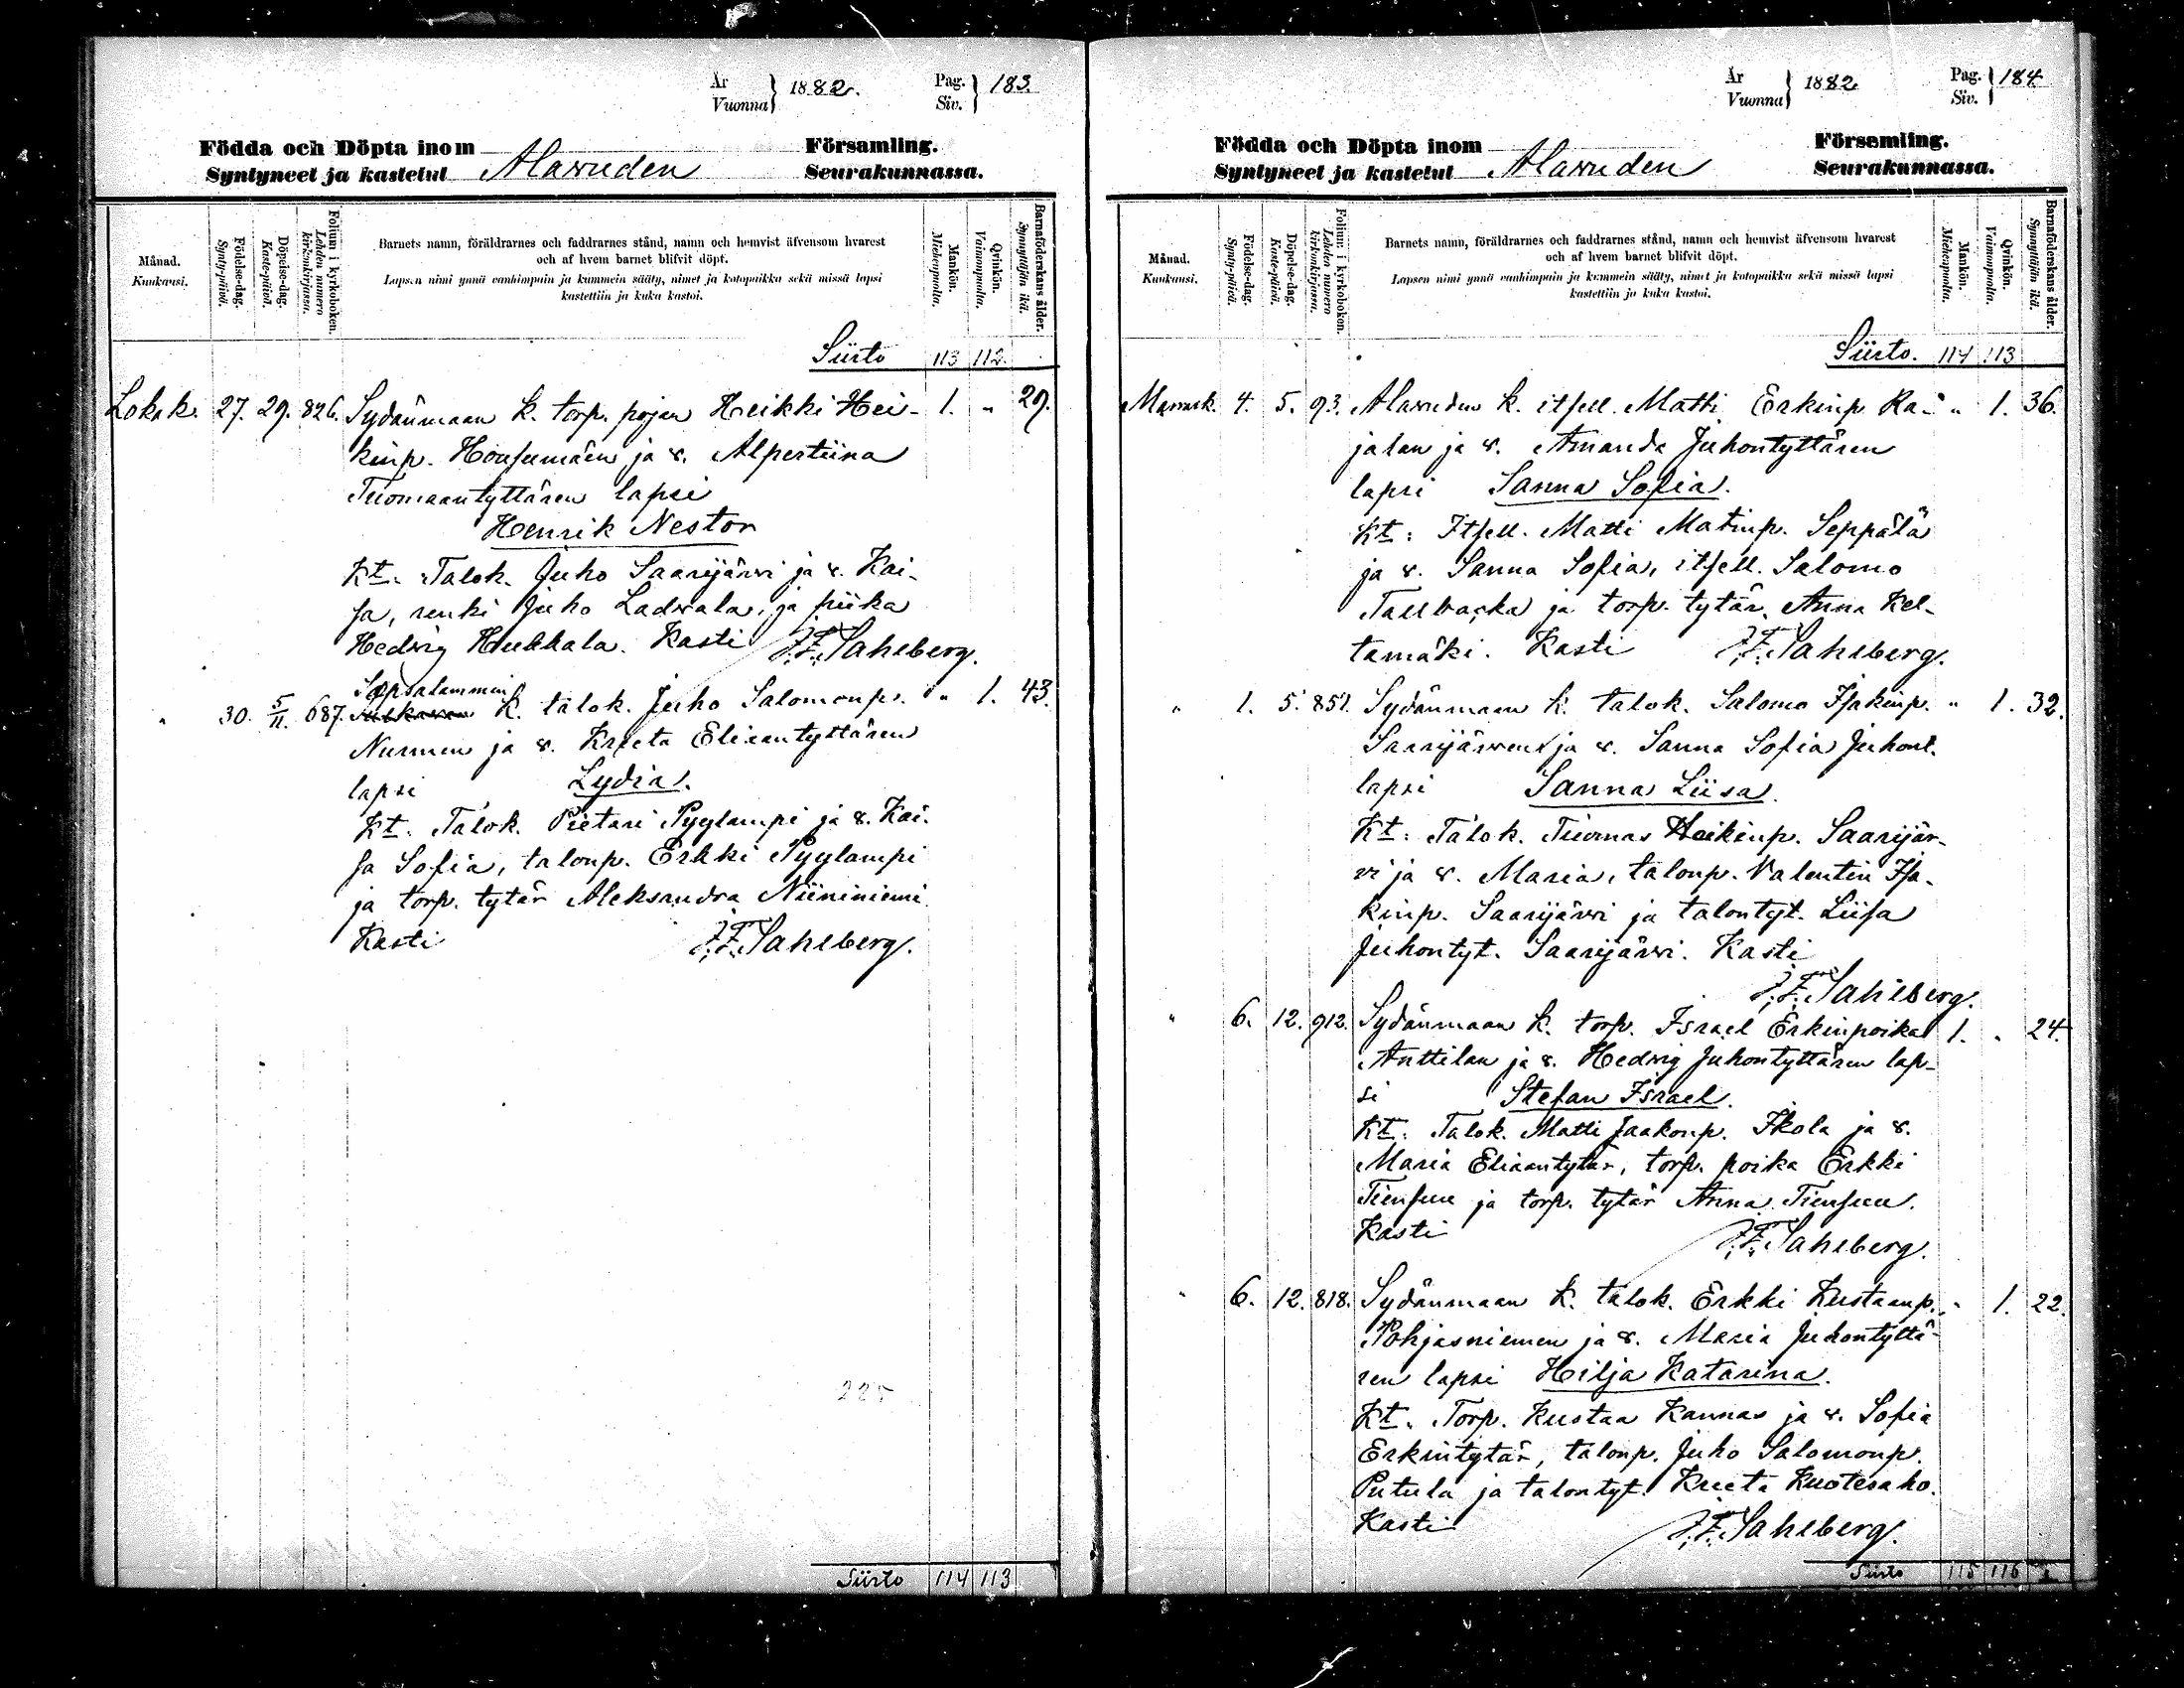 År
Vuonna } 1882.
Pag.
Siv. } 183.
Födda och Döpta inom Församling.
Syntyneet ja kastetut Alavuden Seurakunnassa.
Månad.
Kuukausi.
Födelse-dag.
Synty-päivä.
Döpelse-dag.
Kaste-päivä.
Folium i kyrkoboken.
Lehden numero kirkonkirjassa.
Barnets namn, föräldrarnes och faddrarnes stånd, namn och hemvist äfvensom hvarest
och af hvem barnet blifvit döpt.
Lapsen nimi ynnä vanhimpain ja kummein sääty, nimet ja kotopaikka sekä missä lapsi
kastettiin ja kuka kastoi.
Mankön.
Miehenpuolta.
Qvinkön.
Vaimonpuolta.
Barnaföderskans ålder.
Synnyttäjän ikä.
Siirto 113 112
Lokak. 27. 29. 826. Sydänmaan k. torp. pojan Heikki Hei- 1. " 29.
kinp. Honsumäen ja v. Alpertiina
Tuomaantyttären lapsi
Henrik Nestor
Kt: Talok. Juho Saarijärvi ja v. Kai-
sa, renki Juho Ladvala, ja piika
Hedvig Hukkala. Kasti J. F. Sahlberg.
Sapsalammin
" 30. 5/11. 687. k. talok. Juho Salomonp. " 1. 43.
Nurmen ja v. Kreeta Eliaantyttären
lapsi Lydia.
Kt: Talok. Pietari Pyylampi ja v. Kai-
sa Sofia, talonp. Erkki Pyylampi
ja torp. tytär Aleksandra Niininiemi
Kasti J. F. Sahlberg.
225
Siirto 114 113
År
Vuonna } 1882
Pag.
Siv. } 184
Födda och Döpta inom Församling.
Syntyneet ja kastetut Alavuden Seurakunnassa.
Månad.
Kuukausi.
Födelse-dag.
Synty-päivä.
Döpelse-dag.
Kaste-päivä.
Folium i kyrkoboken.
Lehden numero kirkonkirjassa.
Barnets namn, föräldrarnes och faddrarnes stånd, namn och hemvist äfvensom hvarest
och af hvem barnet blifvit döpt.
Lapsen nimi ynnä vanhimpain ja kummein sääty, nimet ja kotopaikka sekä missä lapsi
kastettiin ja kuka kastoi.
Mankön.
Miehenpuolta.
Qvinkön.
Vaimonpuolta.
Barnaföderskans ålder.
Synnyttäjän ikä.
Siirto. 114 113
Marrask. 4. 5. 93. Alavuden k. itsell. Matti Erkinp. Ra- " 1. 36.
jalan ja v. Amanda Juhontyttären
lapsi Sanna Sofia.
Kt: Itsell. Matti Matinp. Seppälä
ja v. Sanna Sofia, itsell. Salomo
Tallbacka ja torp. tytär Anna Kel-
tamäki. Kasti J. F. Sahlberg.
" 1. 5. 851. Sydänmaan k. talok. Salomo Isakinp. " 1. 32.
Saarijärven ja v. Sanna Sofia Juhont.
lapsi Sanna Liisa.
Kt: Talok. Tuomas Heikinp. Saarijär-
vi ja v. Maria, talonp. Valentin Isa-
kinp. Saarijärvi ja talontyt. Liisa
Juhontyt. Saarijärvi. Kasti
J. F. Sahlberg.
" 6. 12. 912. Sydänmaan k. torp. Israel Erkinpoika 1. " 24.
Anttilan ja v. Hedvig Juhontyttären lap-
si Stefan Israel.
Kt: Talok. Matti Jaakonp. Ikola ja v.
Maria Eliaantytär, torp. poika Erkki
Tiensuu ja torp. tytär Anna Tiensuu.
Kasti J. F. Sahlberg.
" 6. 12. 818. Sydänmaan k. talok. Erkki Kustaanp. " 1. 22.
Pohjasniemen ja v. Maria Juhontyttä-
ren lapsi Hilja Katarina.
Kt: Torp. Kustaa Kannas ja v. Sofia
Erkintytär, talonp. Juho Salomonp.
Putula ja talontyt. Kreeta Kuotesaho.
Kasti J. F. Sahlberg.
Siirto 115 116